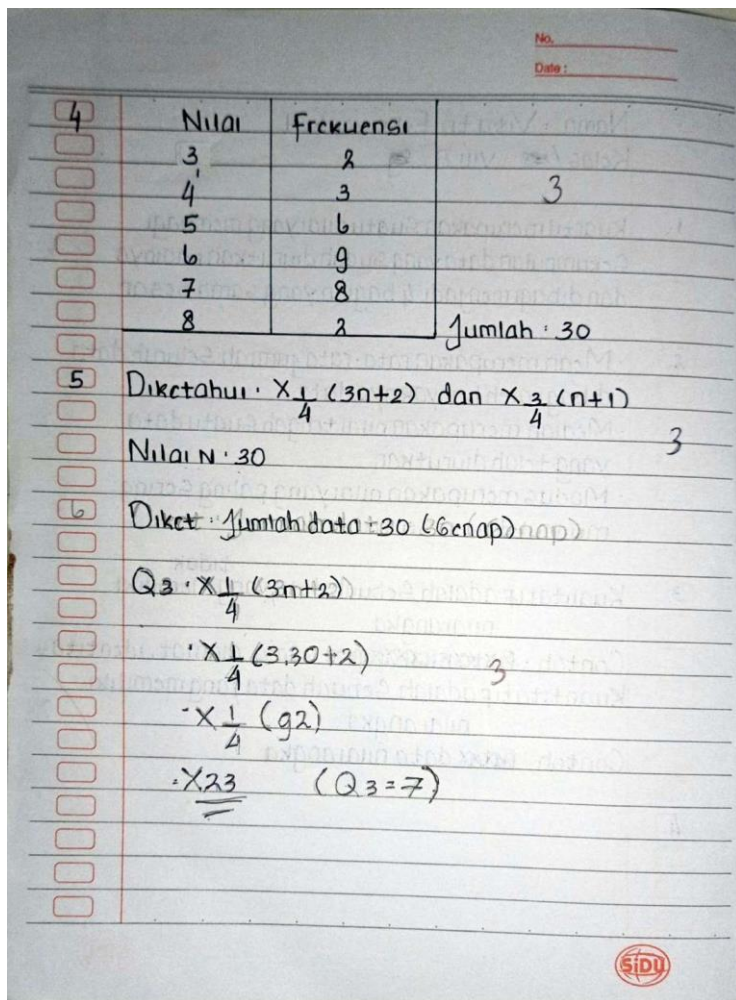 No.
Date :
4 Nilai Frekuensi
3 2
4 3 3
5 6
6 9
7 8
8 2 Jumlah : 30
5 Diketahui : X 1/4 (3n+2) dan X 3/4 (n+1)
3
Nilai N : 30
6 Diket : Jumlah data = 30 (Genap)
Q3 : X 1/4 (3n+2)
: X 1/4 (3.30+2) 3
= X 1/4 (92)
= X23 (Q3=7)
SiDU